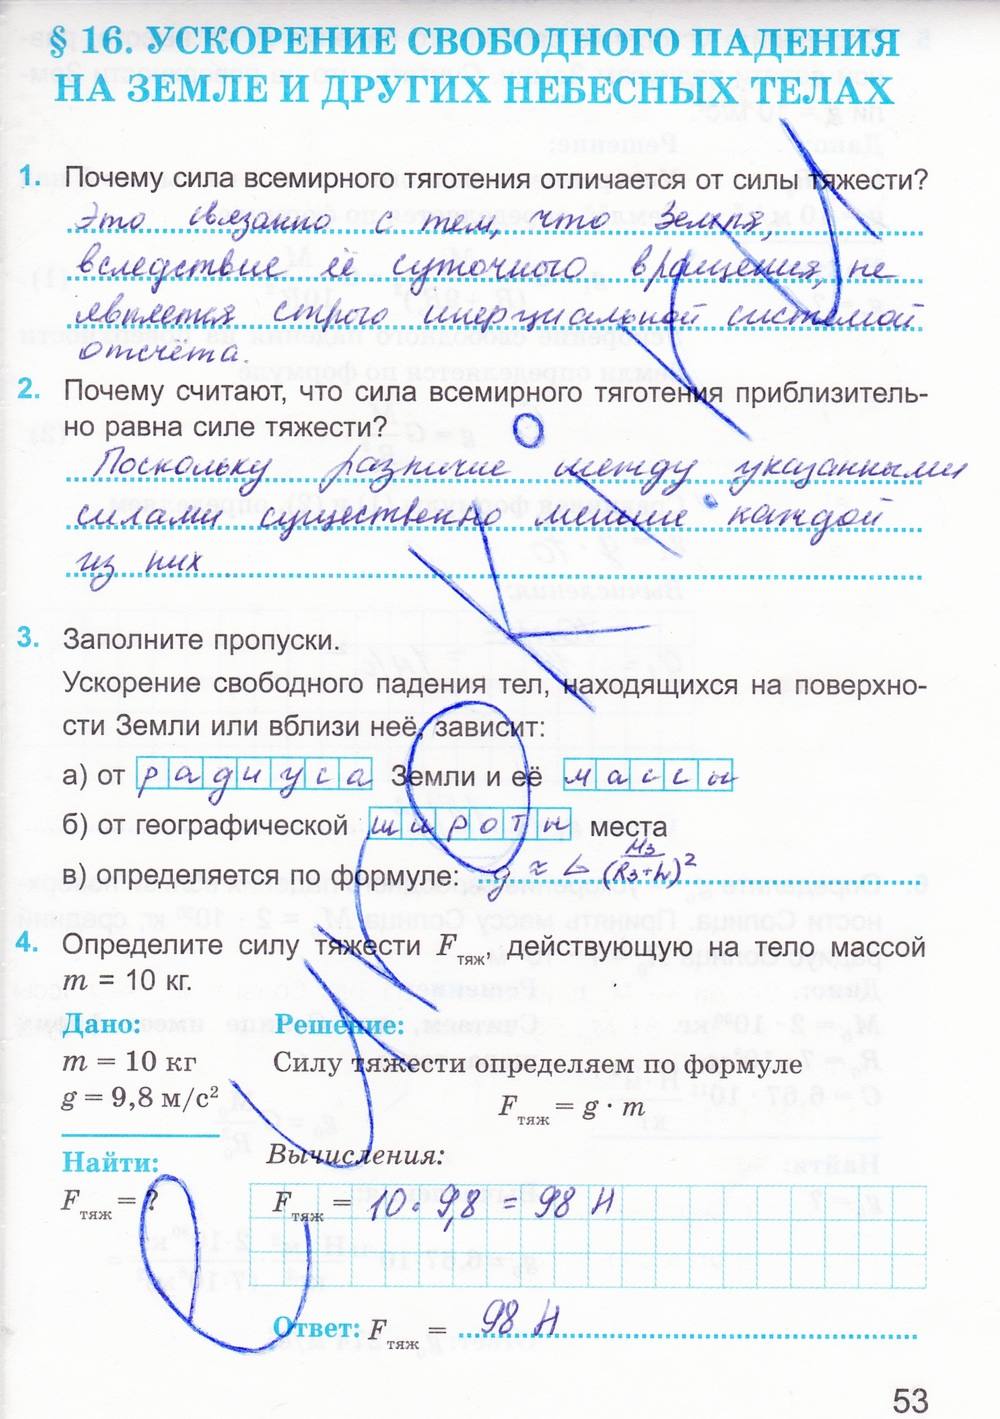 § 16. УСКОРЕНИЕ СВОБОДНОГО ПАДЕНИЯ
НА ЗЕМЛЕ И ДРУГИХ НЕБЕСНЫХ ТЕЛАХ
1. Почему сила всемирного тяготения отличается от силы тяжести?
Это связанно с тем, что Земля,
вследствие её суточного вращения, не
является строго инерциальной системой
отсчёта.
2. Почему считают, что сила всемирного тяготения приблизитель-
но равна силе тяжести?
Поскольку различие между указанными
силами существенно меньше каждой
из них
3. Заполните пропуски.
Ускорение свободного падения тел, находящихся на поверхно-
сти Земли или вблизи неё, зависит:
а) от радиуса Земли и её массы
б) от географической широты места
в) определяется по формуле: g ≈ G Mз/(Rз+h)²
4. Определите силу тяжести Fтяж, действующую на тело массой
m = 10 кг.
Дано:
m = 10 кг
g = 9,8 м/с²
Найти:
Fтяж = ?
Решение:
Силу тяжести определяем по формуле
Fтяж = g · m
Вычисления:
Fтяж = 10 · 9,8 = 98 Н
Ответ: Fтяж = 98 Н
53